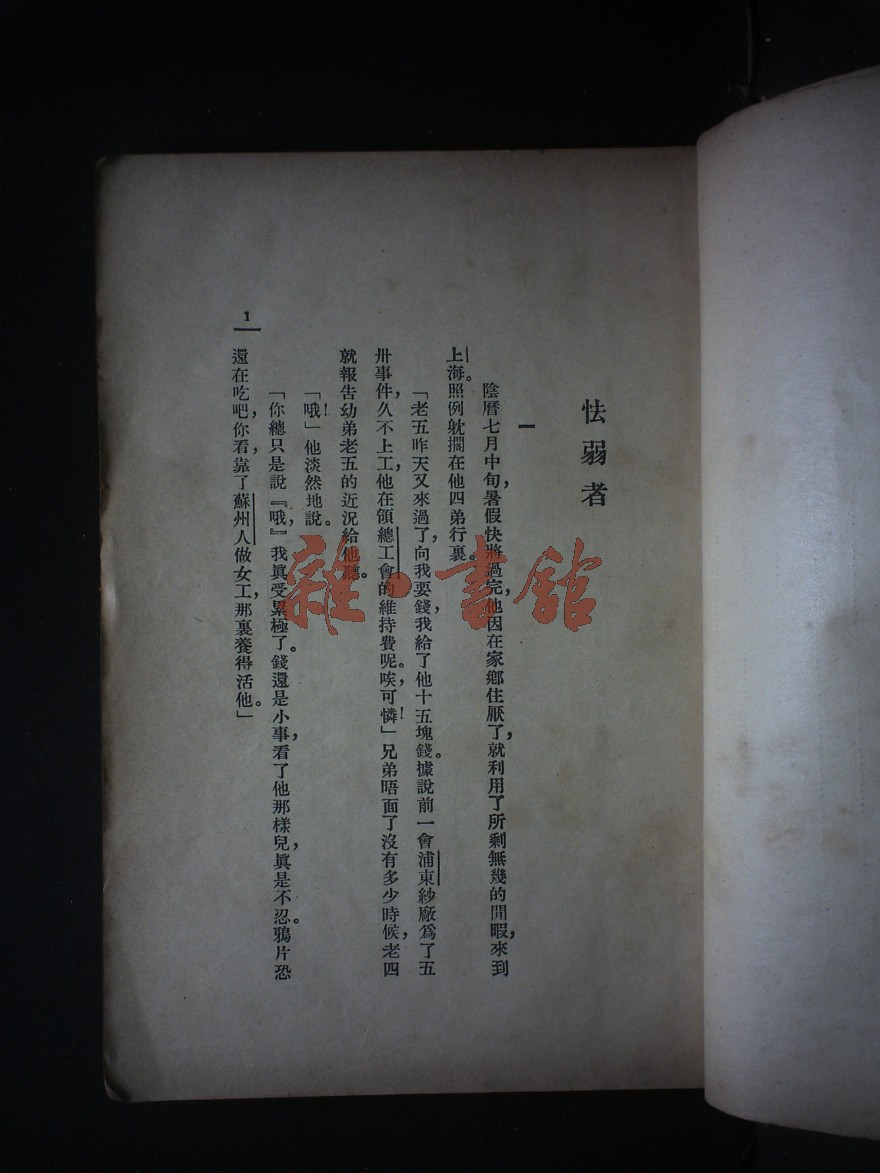 怯弱者
一
陰曆七月中旬，暑假快將過完，他因在家鄉住厭了，就利用了所剩無幾的閒暇，來到
上海。照例躭擱在他四弟行裏。
「老五昨天又來過了，向我要錢，我給了他十五塊錢。據說前一會浦東紗廠爲了五
卅事件，久不上工，他在領總工會的維持費呢。唉，可憐！」兄弟晤面了沒有多少時候，老四
就報告幼弟老五的近況給他聽。
「哦！」他淡然地說。
「你總只是說『哦，』我眞受累極了。錢還是小事，看了他那樣兒，眞是不忍。鴉片恐
還在吃吧，你看，靠了蘇州人做女工，那裏養得活他。」
1
雜·書館